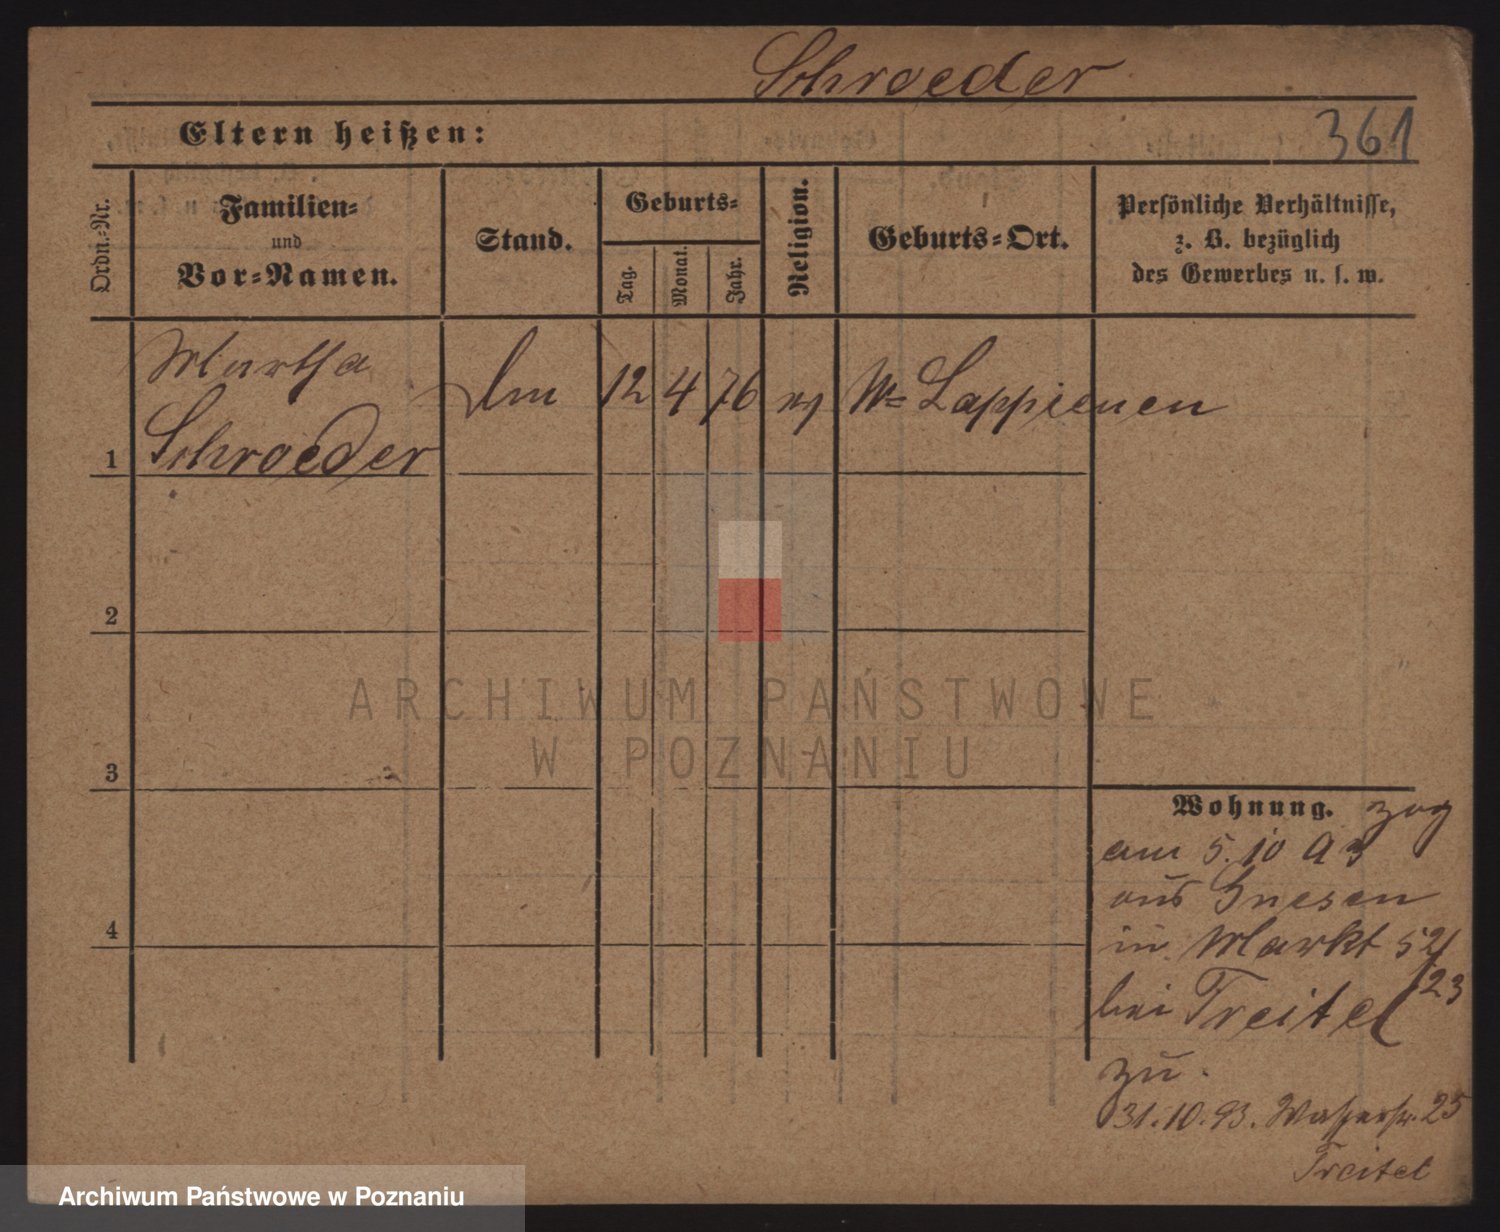 Schroeder
Eltern heißen:
361
Ordn.-Nr.
Familien-
und
Vor-Namen.
Stand.
Geburts-
Tag.
Monat.
Jahr.
Religion.
Geburts-Ort.
Persönliche Verhältnisse,
z. B. bezüglich
des Gewerbes u. s. w.
Martha
Schroeder
12 4 76 Lappienen
1
2
3
4
Wohnung. zog
am 5. 10 93
aus Gnesen
in Markt 52/
/23
bei Treitel
zu.
31.10.93. Wasserstr. 25
Treitel
ARCHIWUM PAŃSTWOWE
W POZNANIU
Archiwum Państwowe w Poznaniu